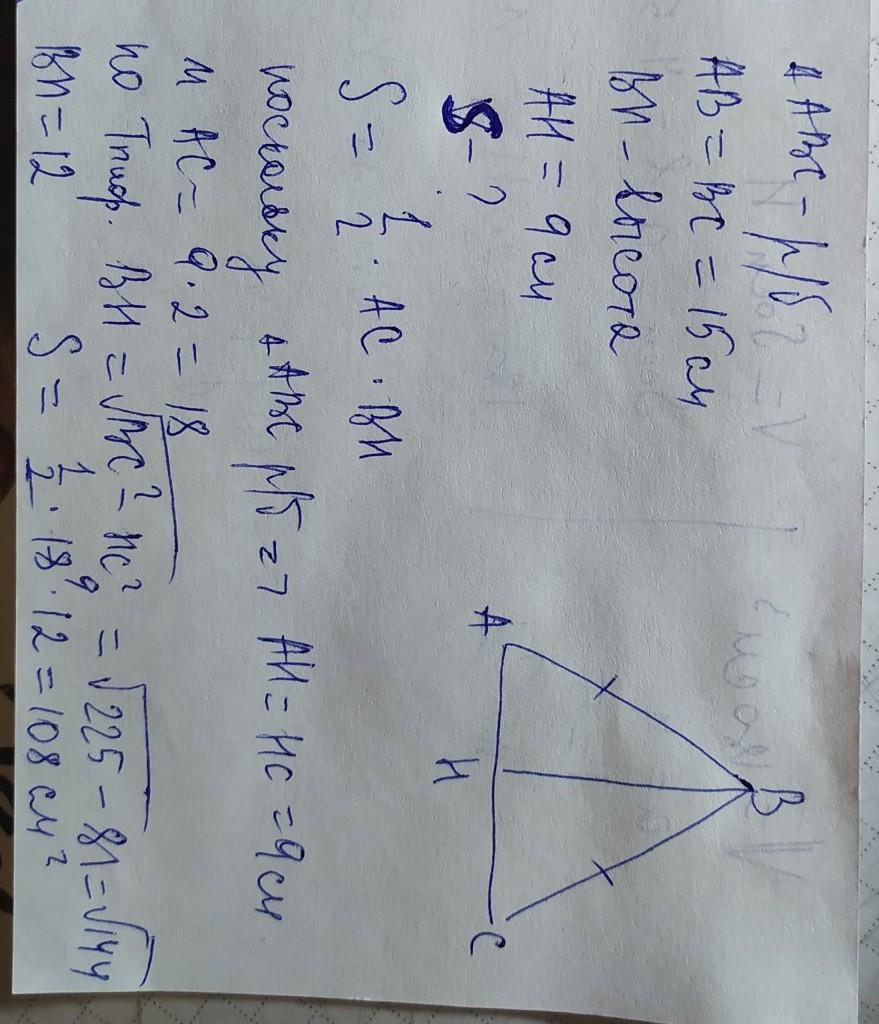 △ ABC - р/б
AB = BC = 15 см
BH - высота
AH = 9 см
S - ?
A
B
H
C
S = 1/2 · AC · BH
поскольку △ ABC р/б => AH = HC = 9 см
и AC = 9 · 2 = 18
по Т пиф. BH = √BC² - HC² = √225 - 81 = √144
BH = 12 S = 1/2 · 18 9 · 12 = 108 см²